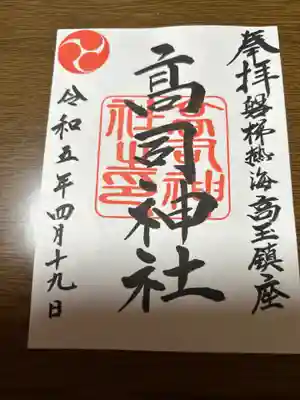 奉拝
磐梯熱海高玉鎮座
高司神社
令和五年四月十九日